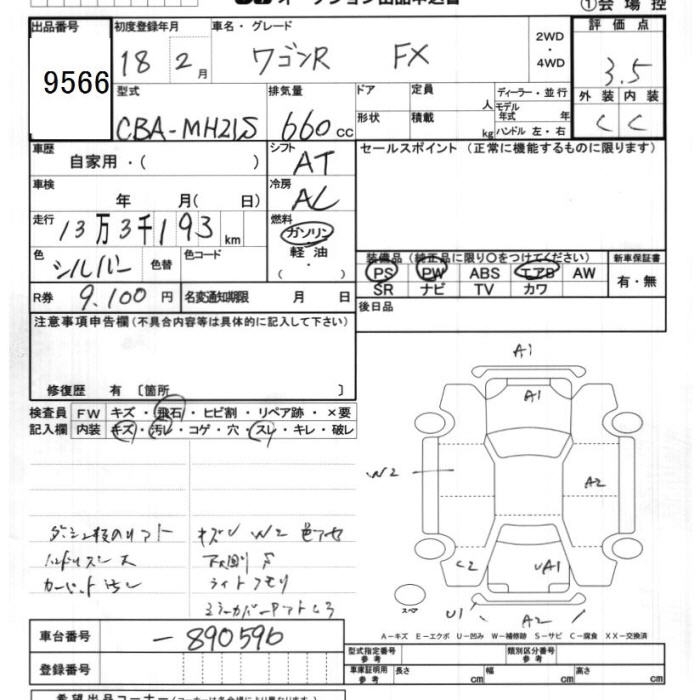 ①会場控
出品番号
9566
初度登録年月
18 2月
車名・グレード
ワゴンR FX
2WD
・
4WD
評価点
3.5
外装 内装
C C
型式
CBA-MH21S
排気量
660cc
ドア
形状
定員
人
積載
kg
ディーラー・並行
モデル
年式 年
ハンドル 左・右
車歴
自家用・( )
シフト
AT
セールスポイント(正常に機能するものに限ります)
車検
年 月( 日)
冷房
AC
走行
13万3千193km
燃料
ガソリン
軽油
( ・ )
色
シルバー
色替
色コード
装備品(純正品に限り○をつけてください)
PS PW ABS エアB AW
SR ナビ TV カワ
新車保証書
有・無
R券
9,100円
名変通知期限 月 日
後日品
注意事項申告欄(不具合内容等は具体的に記入して下さい)
修復歴 有 〔箇所 〕
検査員
記入欄
FW キズ・飛石・ヒビ割・リペア跡・×要
内装 キズ・汚レ・コゲ・穴・スレ・キレ・破レ
ハンドルスレ大
カーペット汚レ
キズU W2 色アセ
下回りS
ライトクモリ
A1
A1
W2
A2
C2
UA1
スペア
U1
A2
A―キズ E―エクボ U―凹み W―補修跡 S―サビ C―腐食 XX―交換済
車台番号
-890596
登録番号
型式指定番号
参考
類別区分番号
参考
車庫証明用
参考
長さ cm
幅 cm
高さ cm
希望出品コーナー